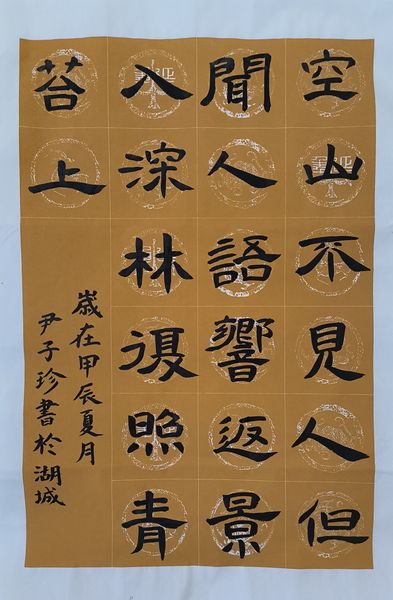 空山不見人但
聞人語響返景
入深林復照青
苔上
歲在甲辰夏月
尹子珍書於湖城